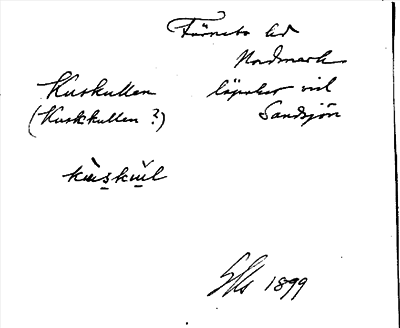 Färnebo hd
Nordmark
Kuskullen
(Kuskkullen ?)
vid
Sandsjön
kùskùl
1899